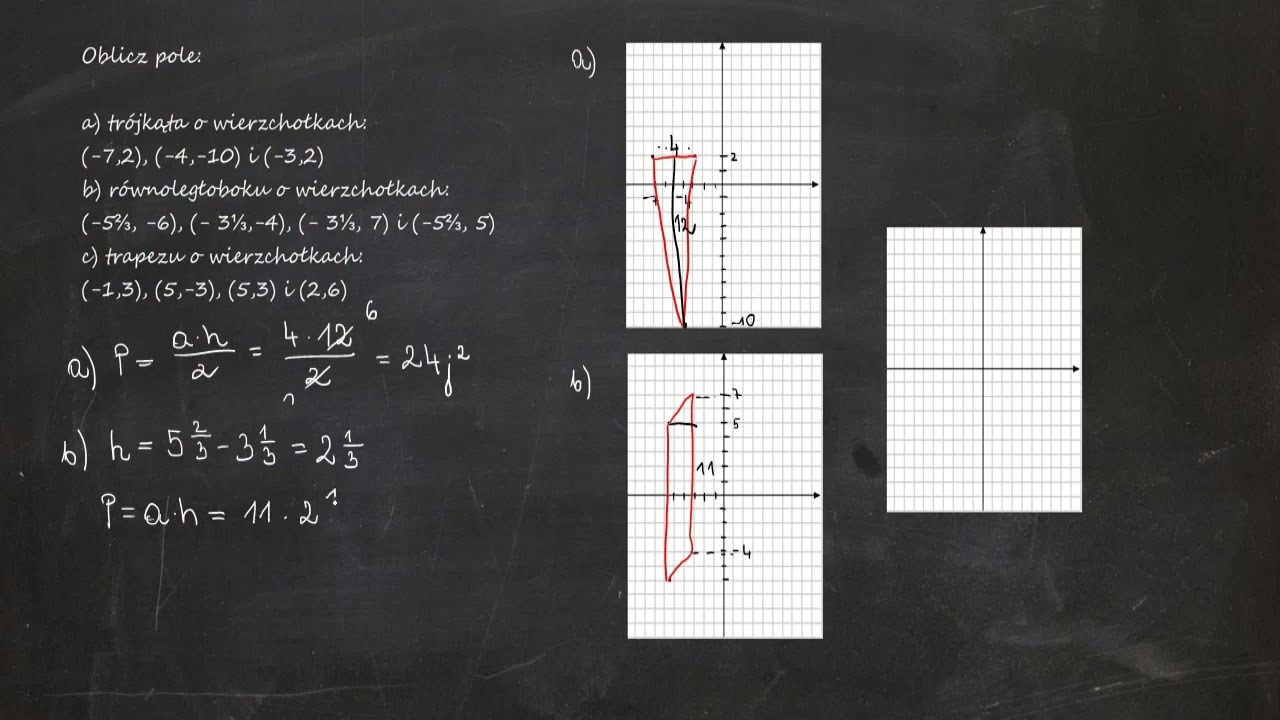 Oblicz pole:
a) trójkąta o wierzchołkach:
(-7,2), (-4,-10) i (-3,2)
b) równoległoboku o wierzchołkach:
(-5⅔, -6), (- 3⅓,-4), (- 3⅓, 7) i (-5⅔, 5)
c) trapezu o wierzchołkach:
(-1,3), (5,-3), (5,3) i (2,6)
a) P = a·h/2 = 4·12/2 = 24j²
6
1
b) h = 5 2/3 - 3 1/3 = 2 1/3
P = a·h = 11 · 2 1
a)
4
2
-7
-4
12
-10
b)
7
5
11
-4